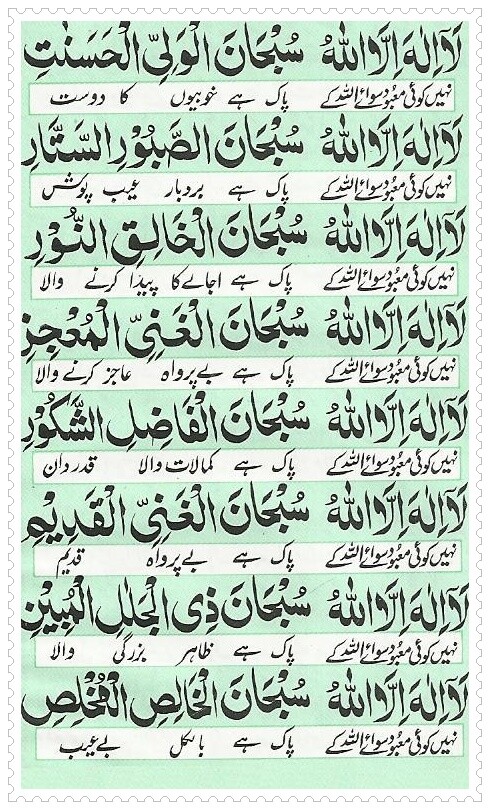 لَآ اِلٰهَ اِلَّا اللهُ سُبْحَانَ الْوَلِیِّ الْحَسَنٰتِ
نہیں کوئی معبود سوائے اللہ کے پاک ہے خوبیوں کا دوست
لَآ اِلٰهَ اِلَّا اللهُ سُبْحَانَ الصَّبُوْرِ السَّتَّارِ
نہیں کوئی معبود سوائے اللہ کے پاک ہے بردبار عیب پوش
لَآ اِلٰهَ اِلَّا اللهُ سُبْحَانَ الْخَالِقِ النُّوْرِ
نہیں کوئی معبود سوائے اللہ کے پاک ہے اجالے کا پیدا کرنے والا
لَآ اِلٰهَ اِلَّا اللهُ سُبْحَانَ الْغَنِیِّ الْمُعْجِزِ
نہیں کوئی معبود سوائے اللہ کے پاک ہے بے پرواہ عاجز کرنے والا
لَآ اِلٰهَ اِلَّا اللهُ سُبْحَانَ الْفَاضِلِ الشَّكُوْرِ
نہیں کوئی معبود سوائے اللہ کے پاک ہے کمالات والا قدردان
لَآ اِلٰهَ اِلَّا اللهُ سُبْحَانَ الْغَنِیِّ الْقَدِیْمِ
نہیں کوئی معبود سوائے اللہ کے پاک ہے بے پرواہ قدیم
لَآ اِلٰهَ اِلَّا اللهُ سُبْحَانَ ذِی الْجَلٰلِ الْمُبِیْنِ
نہیں کوئی معبود سوائے اللہ کے پاک ہے ظاہر بزرگی والا
لَآ اِلٰهَ اِلَّا اللهُ سُبْحَانَ الْخَالِصِ الْمُخْلِصِ
نہیں کوئی معبود سوائے اللہ کے پاک ہے بالکل بے عیب